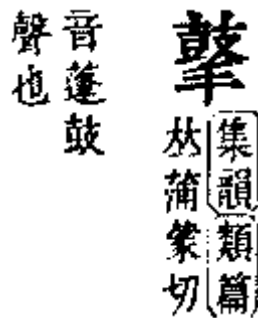 集韻類篇
𠀤蒲蒙切
音蓬鼓
聲也